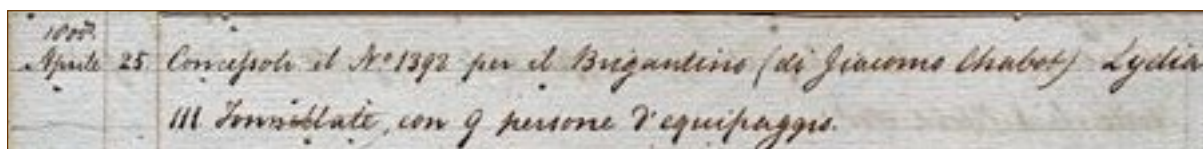 1800.
Aprile 25 Concessoli il No. 1392 per il Brigantino (di Giacomo Chabot) Lydia
111 Tonnellate, con 9 persone d'equipaggio.